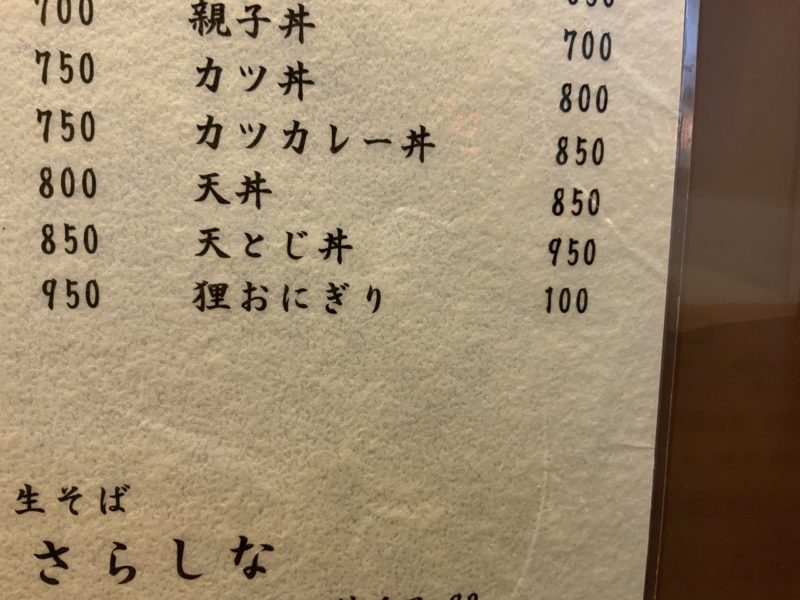 700 親子丼 700
750 カツ丼 800
750 カツカレー丼 850
800 天丼 850
850 天とじ丼 950
950 狸おにぎり 100
生そば
さらしな